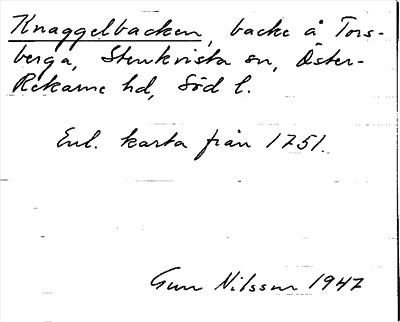 Knaggelbacken, backe å Tors-
berga, Stenkvista sn, Öster-
Rekarne hd, Söd l.
Enl. karta från 1751.
Gun Nilsson 1947